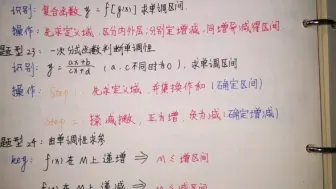 识别: 复合函数 y = f[g(x)] 求单调区间
操作: 先求定义域, 区分内外层, 分别定增减, 同增异减得区间
题型23: 一次分式函数判断单调性
识别: y = ax+b/cx+d (a、c不同时为0), 求单调区间
操作: Step 1: 先求定义域, 并集换作和 (确定区间)
Step 2: 撇减捺, 正为增, 负为减 (确定增减)
题型24: 由单调性求参
key: f(x) 在 M 上递增 ⇒ M ⊆ 增区间
f(x) 在 M 上递减 ⇒ M ⊆ 减区间